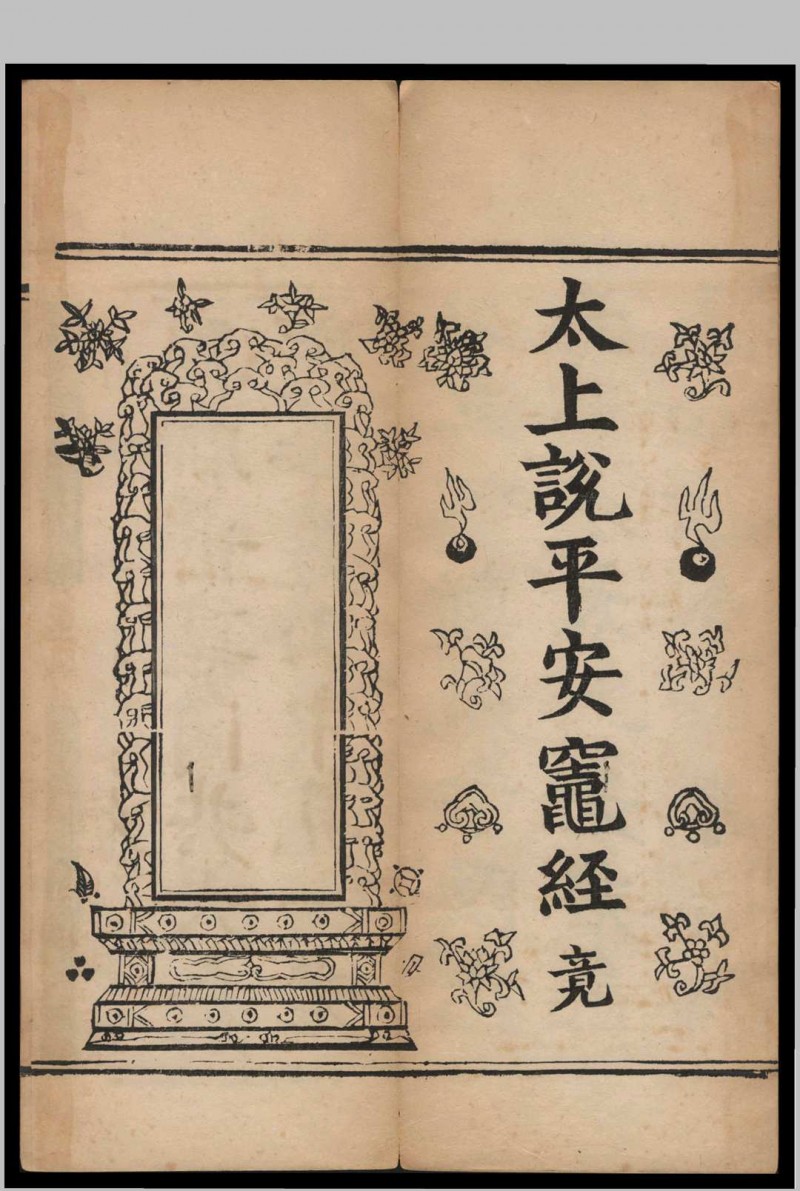 太上說平安竈經竟